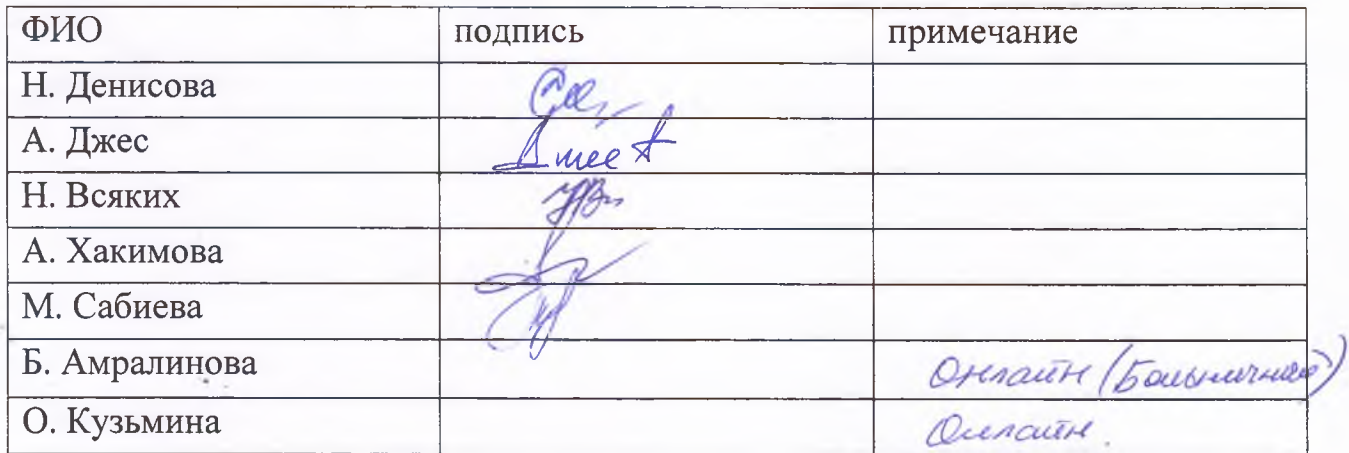 ФИО подпись примечание
Н. Денисова
А. Джес
Н. Всяких
А. Хакимова
М. Сабиева
Б. Амралинова Онлайн (Больничный)
О. Кузьмина Онлайн.